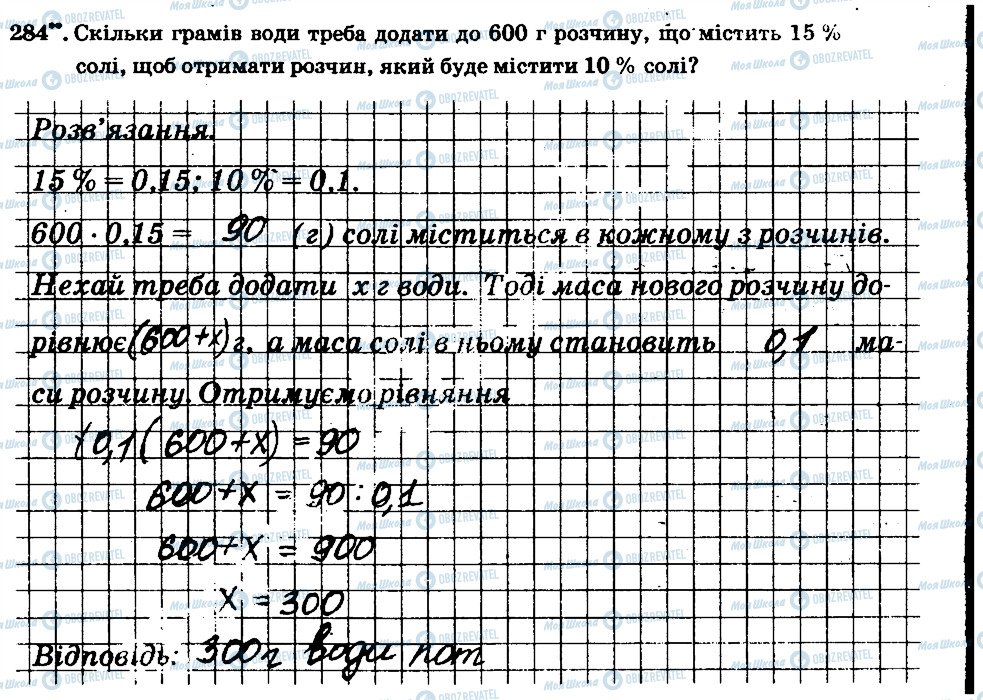 284**. Скільки грамів води треба додати до 600 г розчину, що містить 15 %
солі, щоб отримати розчин, який буде містити 10 % солі?
Розв’язання.
15 % = 0,15; 10 % = 0,1.
600 · 0,15 = 90 (г) солі міститься в кожному з розчинів.
Нехай треба додати x г води. Тоді маса нового розчину до-
рівнює (600+x) г, а маса солі в ньому становить 0,1 ма-
си розчину. Отримуємо рівняння
0,1(600+x) = 90
600+x = 90 : 0,1
600+x = 900
x = 300
Відповідь: 300г води пот
МояШкола OBOZREVATEL